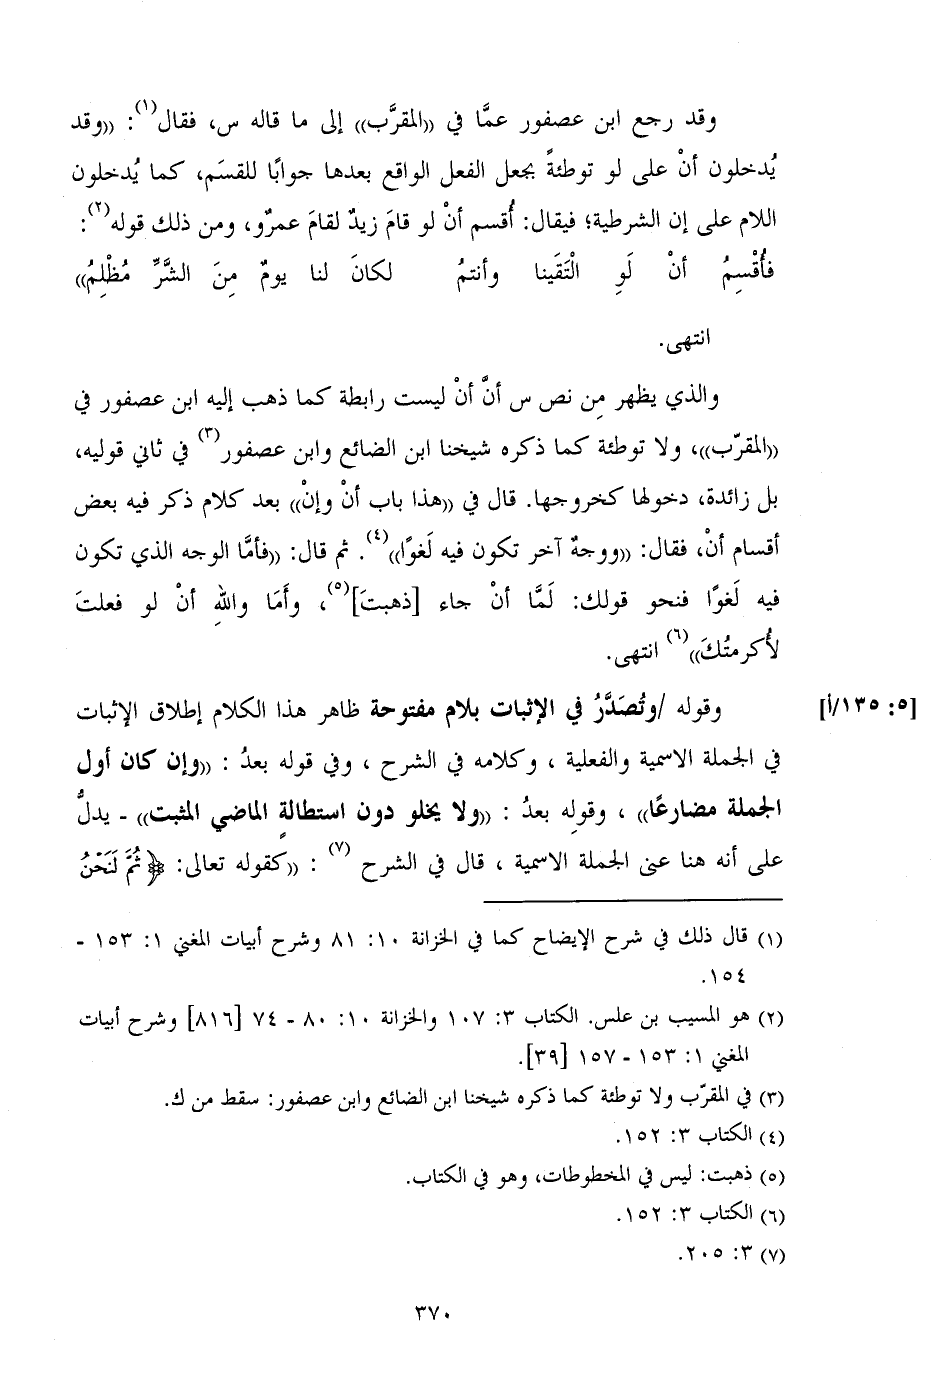 وقد رجع ابن عصفور عمَّا في «المقرَّب» إلى ما قاله س، فقال(١): «وقد
يُدخلون أنْ على لو توطئةً بجعل الفعل الواقع بعدها جوابًا للقسَم، كما يُدخلون
اللام على إن الشرطية؛ فيقال: أُقسم أنْ لو قامَ زيدٌ لقامَ عمرٌو، ومن ذلك قوله(٢):
فأُقْسِمُ أنْ لَوِ الْتَقَينا وأنتمُ لكانَ لنا يومٌ مِنَ الشَّرِّ مُظْلِمُ»
انتهى.
والذي يظهر مِن نص س أنَّ أنْ ليست رابطة كما ذهب إليه ابن عصفور في
«المقرّب»، ولا توطئة كما ذكره شيخنا ابن الضائع وابن عصفور(٣) في ثاني قوليه،
بل زائدة، دخولها كخروجها. قال في «هذا باب أنْ وإنْ» بعد كلام ذكر فيه بعض
أقسام أنْ، فقال: «ووجهٌ آخر تكون فيه لَغوًا»(٤). ثم قال: «فأمَّا الوجه الذي تكون
فيه لَغوًا فنحو قولك: لَمَّا أنْ جاء [ذهبتَ](٥)، وأَمَا واللهِ أنْ لو فعلتَ
لأُكرمتُكَ»(٦) انتهى.
وقوله /وتُصَدَّرُ في الإثبات بلام مفتوحة ظاهر هذا الكلام إطلاق الإثبات [٥: ١٣٥/أ]
في الجملة الاسمية والفعلية ، وكلامه في الشرح ، وفي قوله بعدُ : «وإن كان أول
الجملة مضارعًا» ، وقوله بعدُ : «ولا يخلو دون استطالةٍ الماضي المثبت» - يدلُّ
على أنه هنا عنى الجملة الاسمية ، قال في الشرح (٧) : «كقوله تعالى: ﴿ ثُمَّ لَنَحْنُ
(١) قال ذلك في شرح الإيضاح كما في الخزانة ١٠: ٨١ وشرح أبيات المغني ١: ١٥٣ -
١٥٤.
(٢) هو المسيب بن علس. الكتاب ٣: ١٠٧ والخزانة ١٠: ٨٠ - ٧٤ [٨١٦] وشرح أبيات
المغني ١: ١٥٣ - ١٥٧ [٣٩].
(٣) في المقرّب ولا توطئة كما ذكره شيخنا ابن الضائع وابن عصفور: سقط من ك.
(٤) الكتاب ٣: ١٥٢.
(٥) ذهبت: ليس في المخطوطات، وهو في الكتاب.
(٦) الكتاب ٣: ١٥٢.
(٧) ٣: ٢٠٥.
٣٧٠